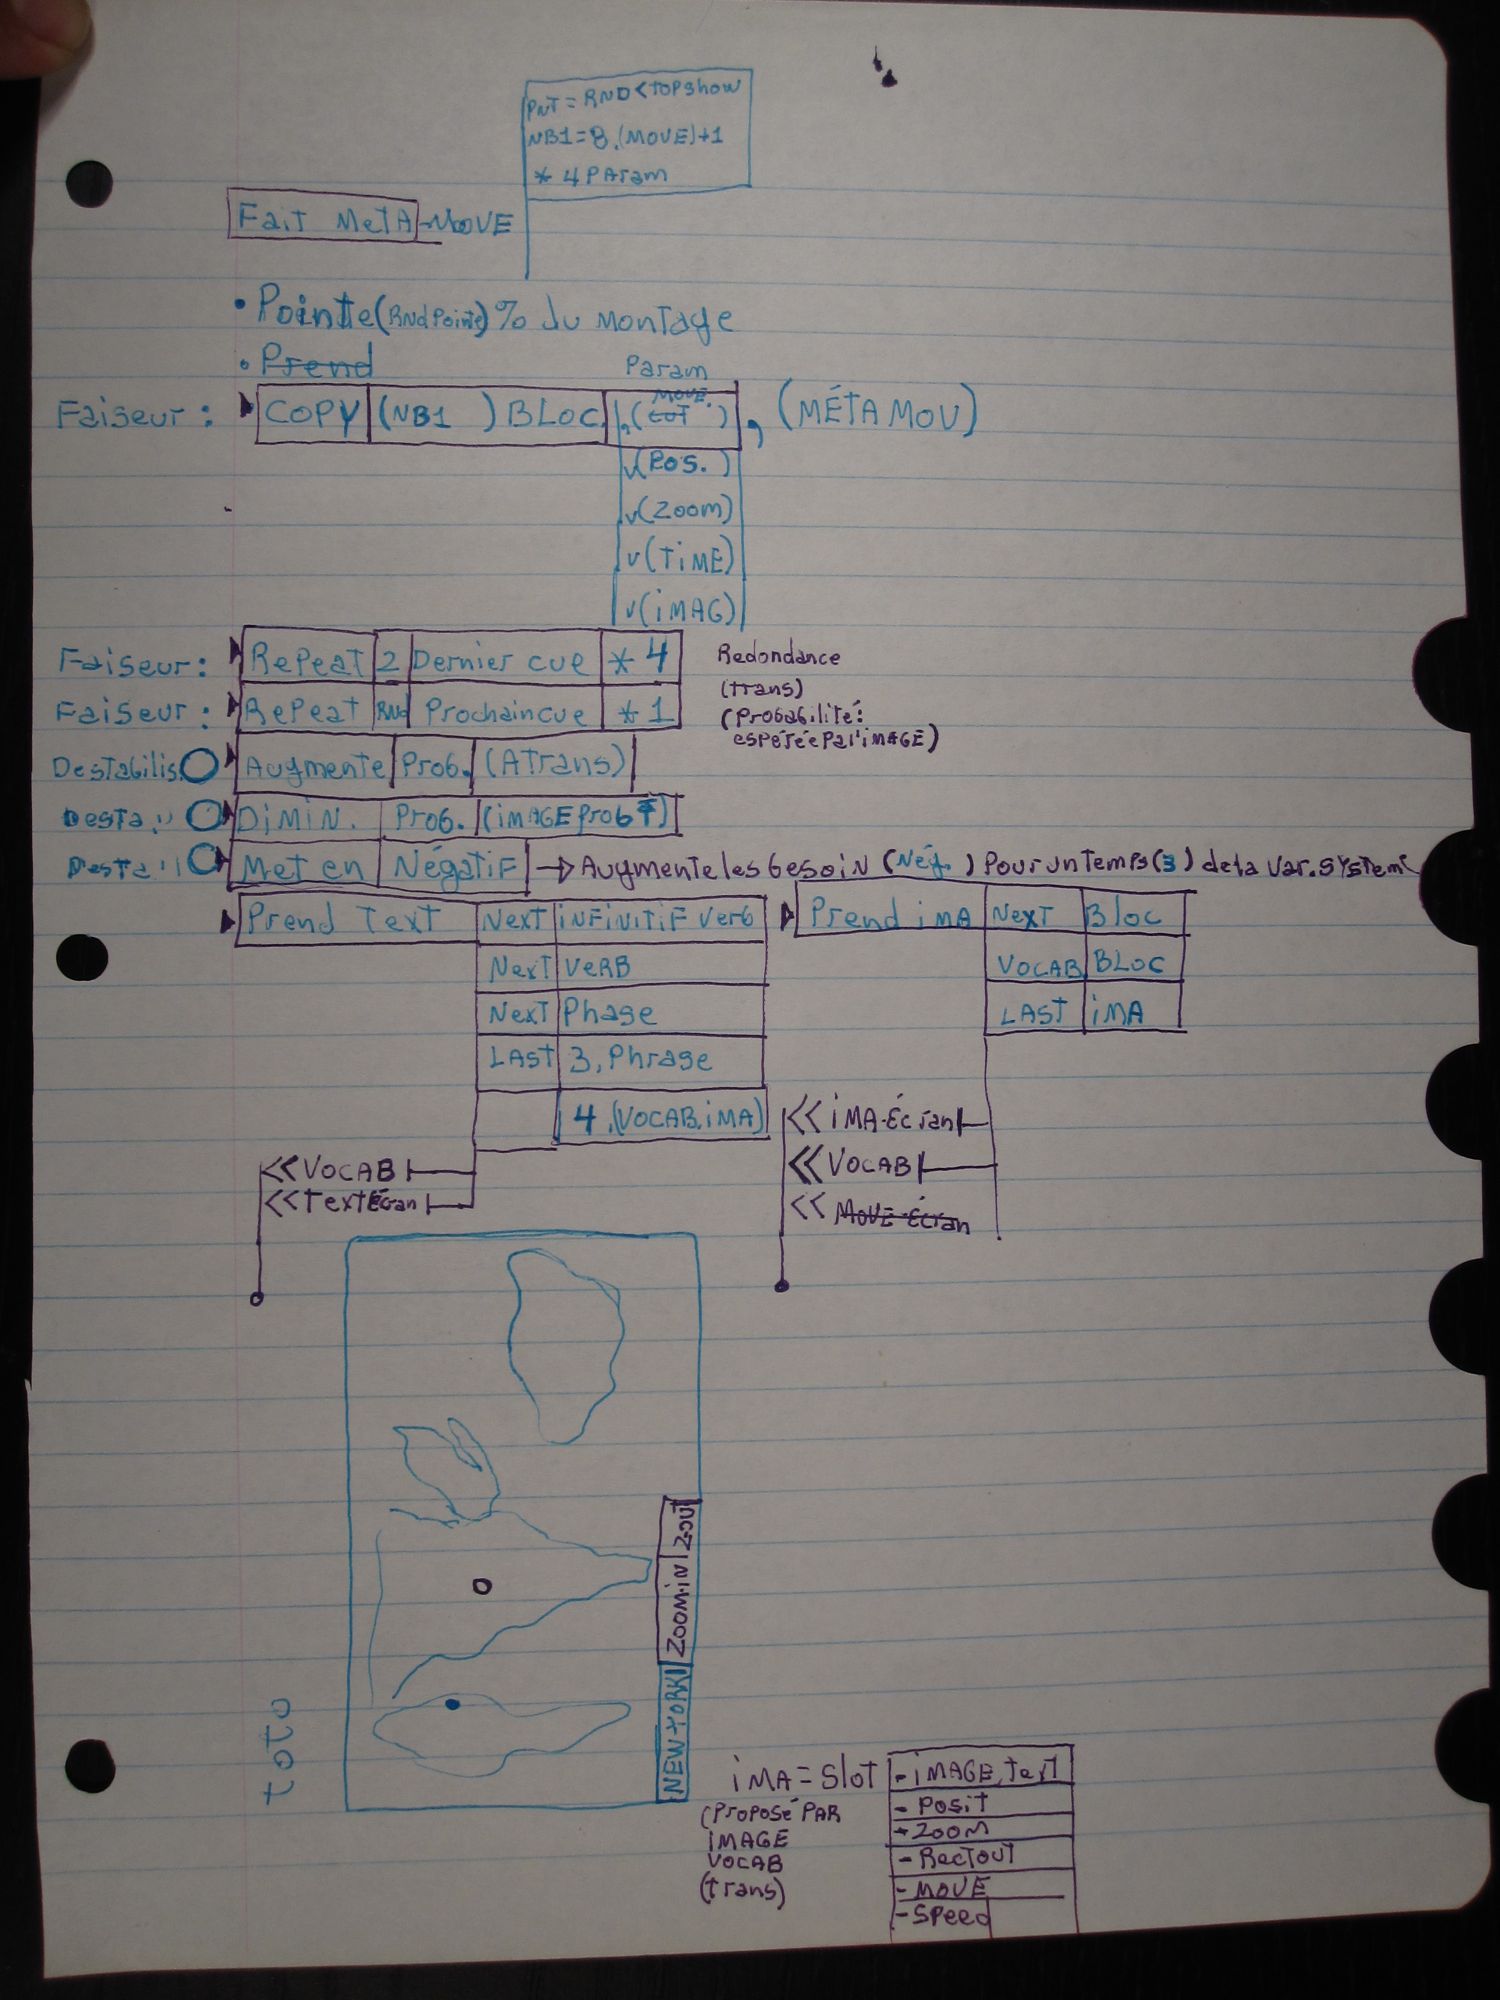 PNT = RND < TOPShow
NB1 = 8.(MOVE)+1
* 4 PAram
Fait MetA-MOVE
• Pointe (RNdPointe) % du montage
• Prend
Param
MOVE.
Faiseur : COPY (NB1 ) BLOC ,(tot ) , (MÉTA MOV)
v(POS.)
v(Zoom)
v(TiME)
v(iMAG)
Faiseur : RePeaT 2 Dernier cue * 4 Redondance
(trans)
Faiseur : RePeat RNd Prochain cue * 1 (Probabilité:
espérée Par l'iMAGE)
Destabilis. Augmente Prob. (ATrans)
Desta. '' DiMiN. Prob. (iMAGE Prob T)
Desta '' Met en NégatiF → Augmente les besoiN (Nég.) Pour un Temps (3) de la Var. SYSTem
Prend Text NexT iNFiNiTiF Verb Prend iMA NexT Bloc
NexT VeRB VOCAB BLOC
NexT Phase LAST iMA
LAST 3, Phrase
4 .(VOCAB.iMA)
<< iMA-Écran
<< VOCAB << VOCAB
<< TextÉcran << MOVE-Écran
ZOOM-iN Z-OUT
NEW-YORK
toto
iMA = Slot - iMAGE, text
(ProPosé PAR - Posit
iMAGE + ZOOM
VOCAB - RectOUT
(trans) - MOVE
- SPeed